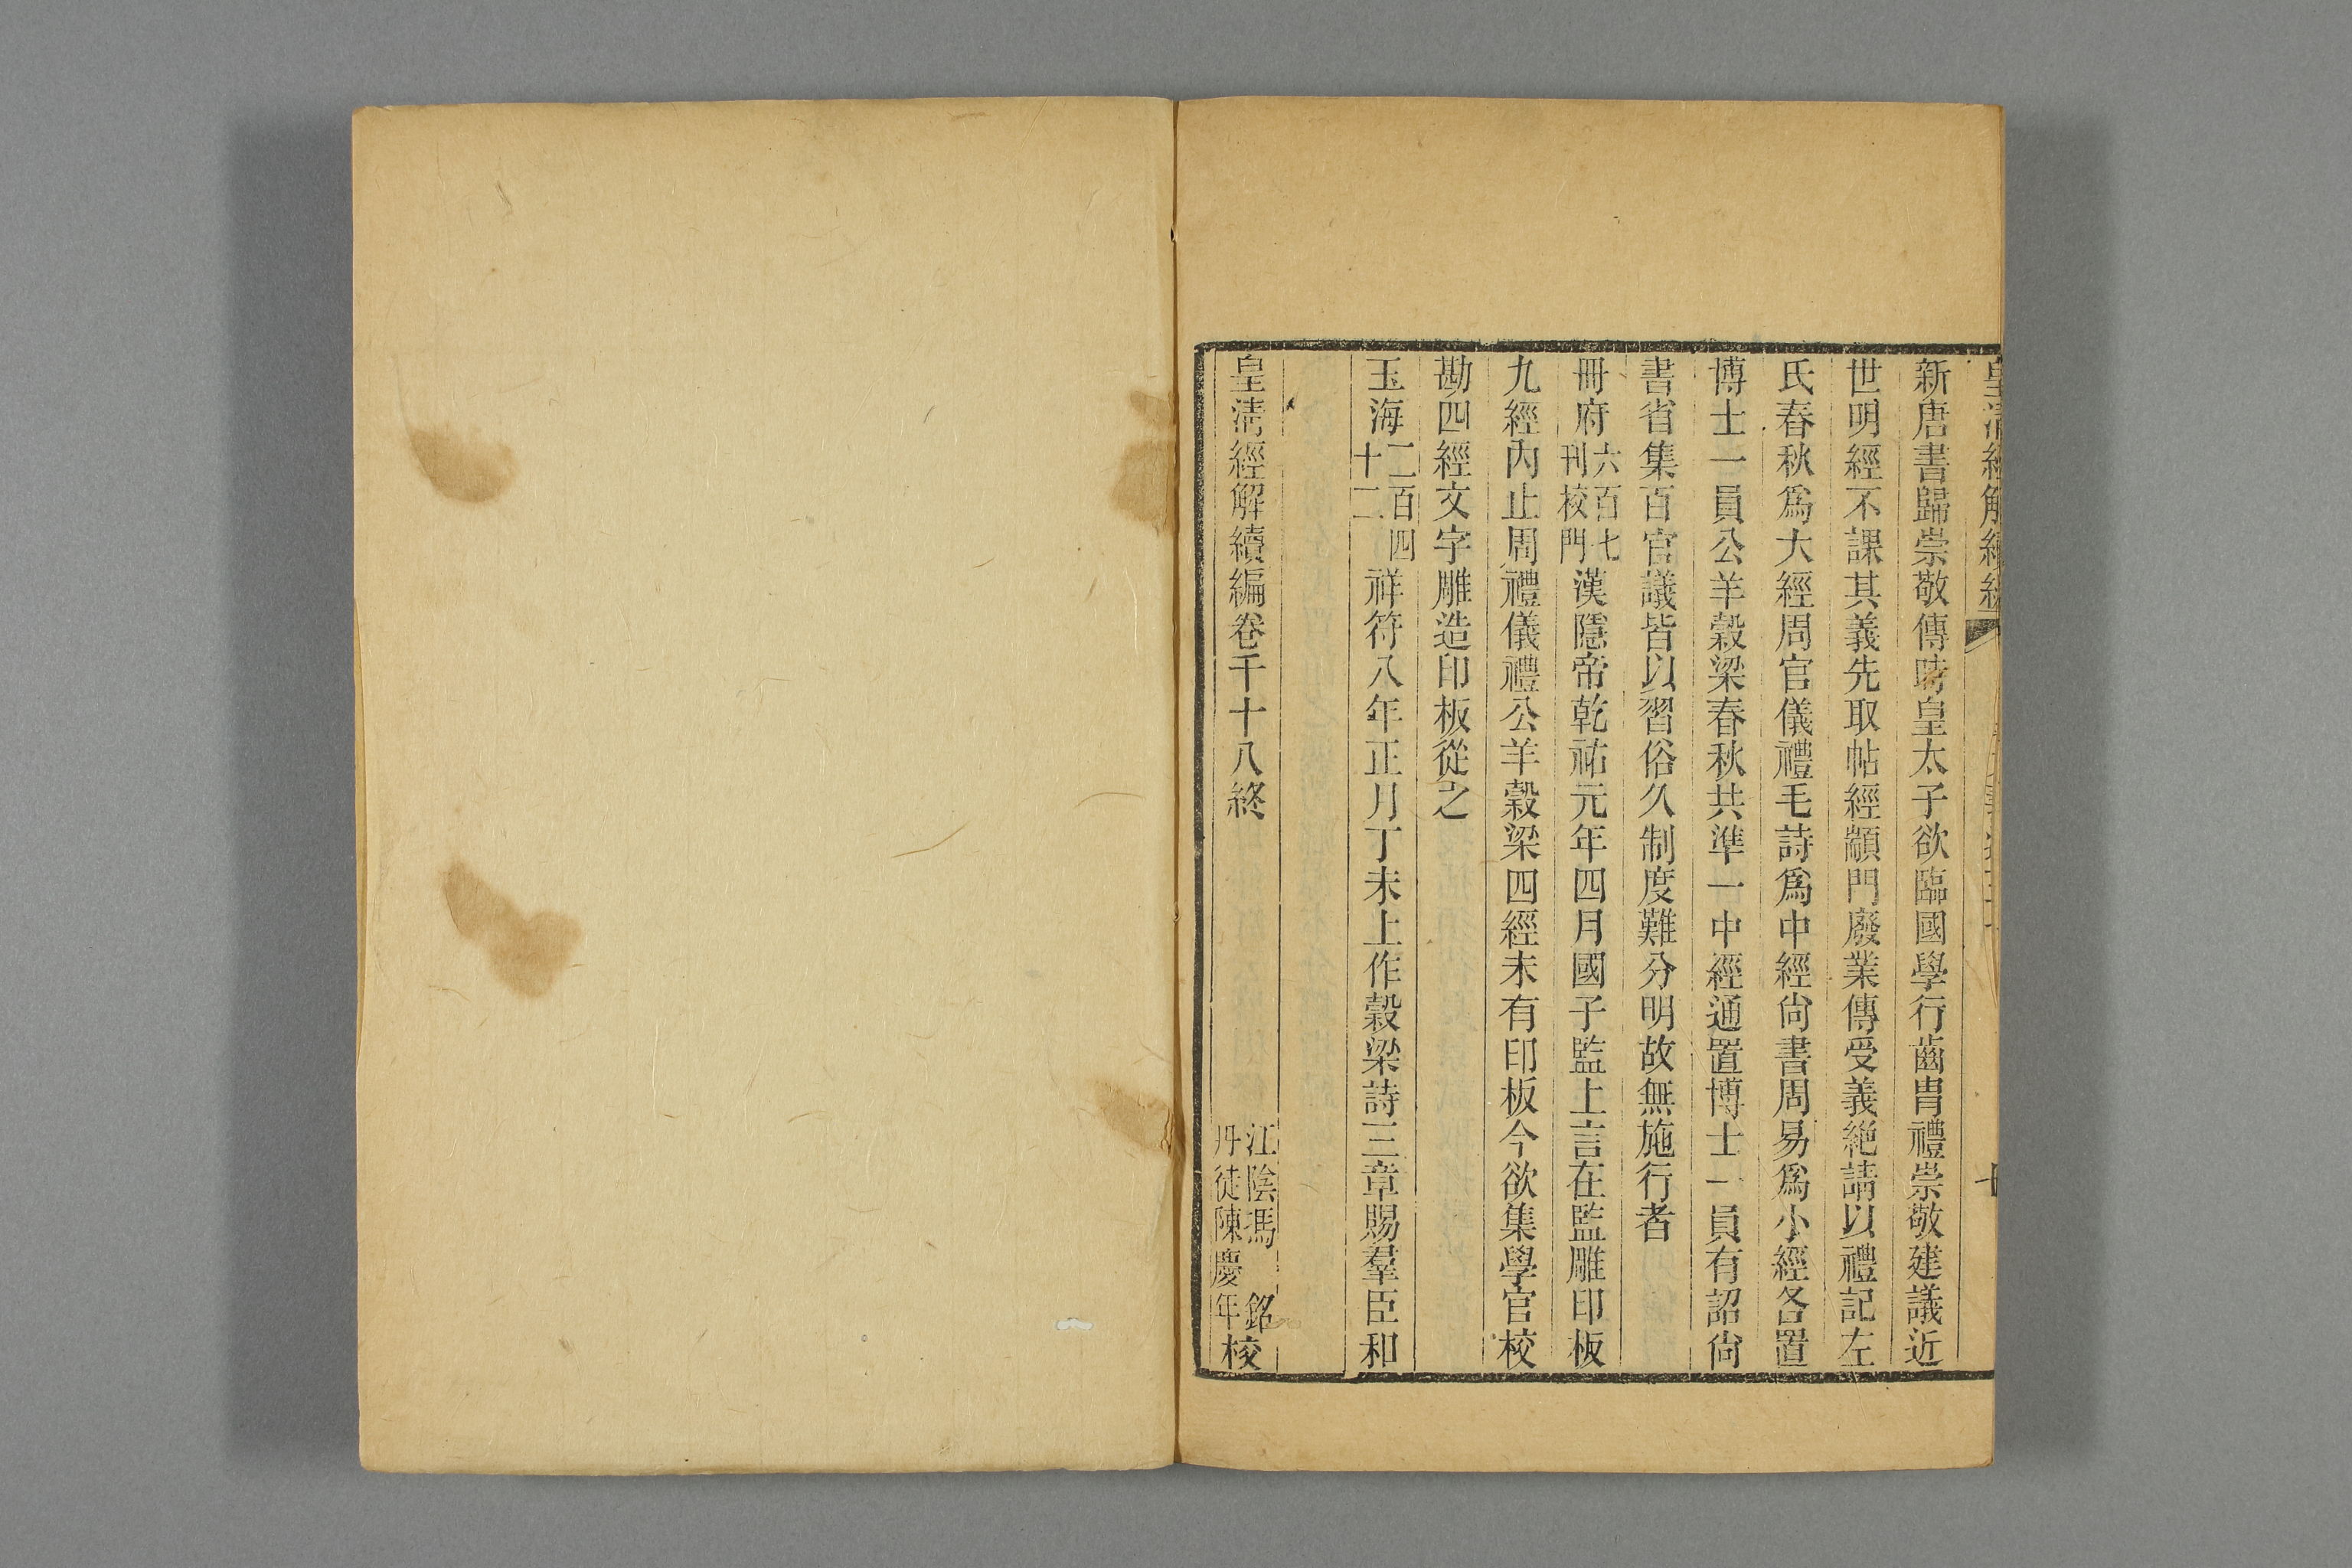 皇清經解續編
新唐書歸崇敬傳時皇太子欲臨國學行齒胄禮崇敬建議近
世明經不課其義先取帖經顓門廢業傳受義絶請以禮記左
氏春秋爲大經周官儀禮毛詩爲中經尙書周易爲小經各置
博士一員公羊榖梁春秋共準一中經通置博士一員有詔尙
書省集百官議皆以習俗久制度難分明故無施行者
冊府六百七刊校門漢隱帝乾祐元年四月國子監上言在監雕印板
九經內止周禮儀禮公羊榖梁四經未有印板今欲集學官校
勘四經文字雕造印板從之
玉海二百四十二祥符八年正月丁未上作榖梁詩三章賜羣臣和
皇清經解續編卷千十八終
江陰馮銘
丹徒陳慶年校